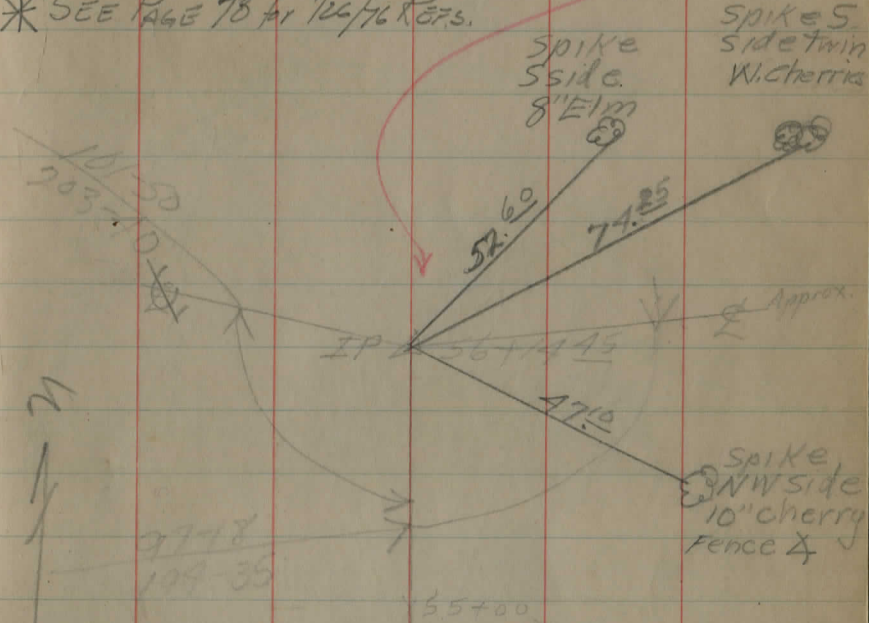 * SEE PAGE 78 for 126/76 REFS.
Spike
S side
8" Elm
Spike S.
side twin
W. Cherries
101-50
203-40
52.60
74.85
℄
℄ Approx.
IP △ 56+14.45
47.10
N
Spike
NW side
10" cherry
Fence ∡
55+00